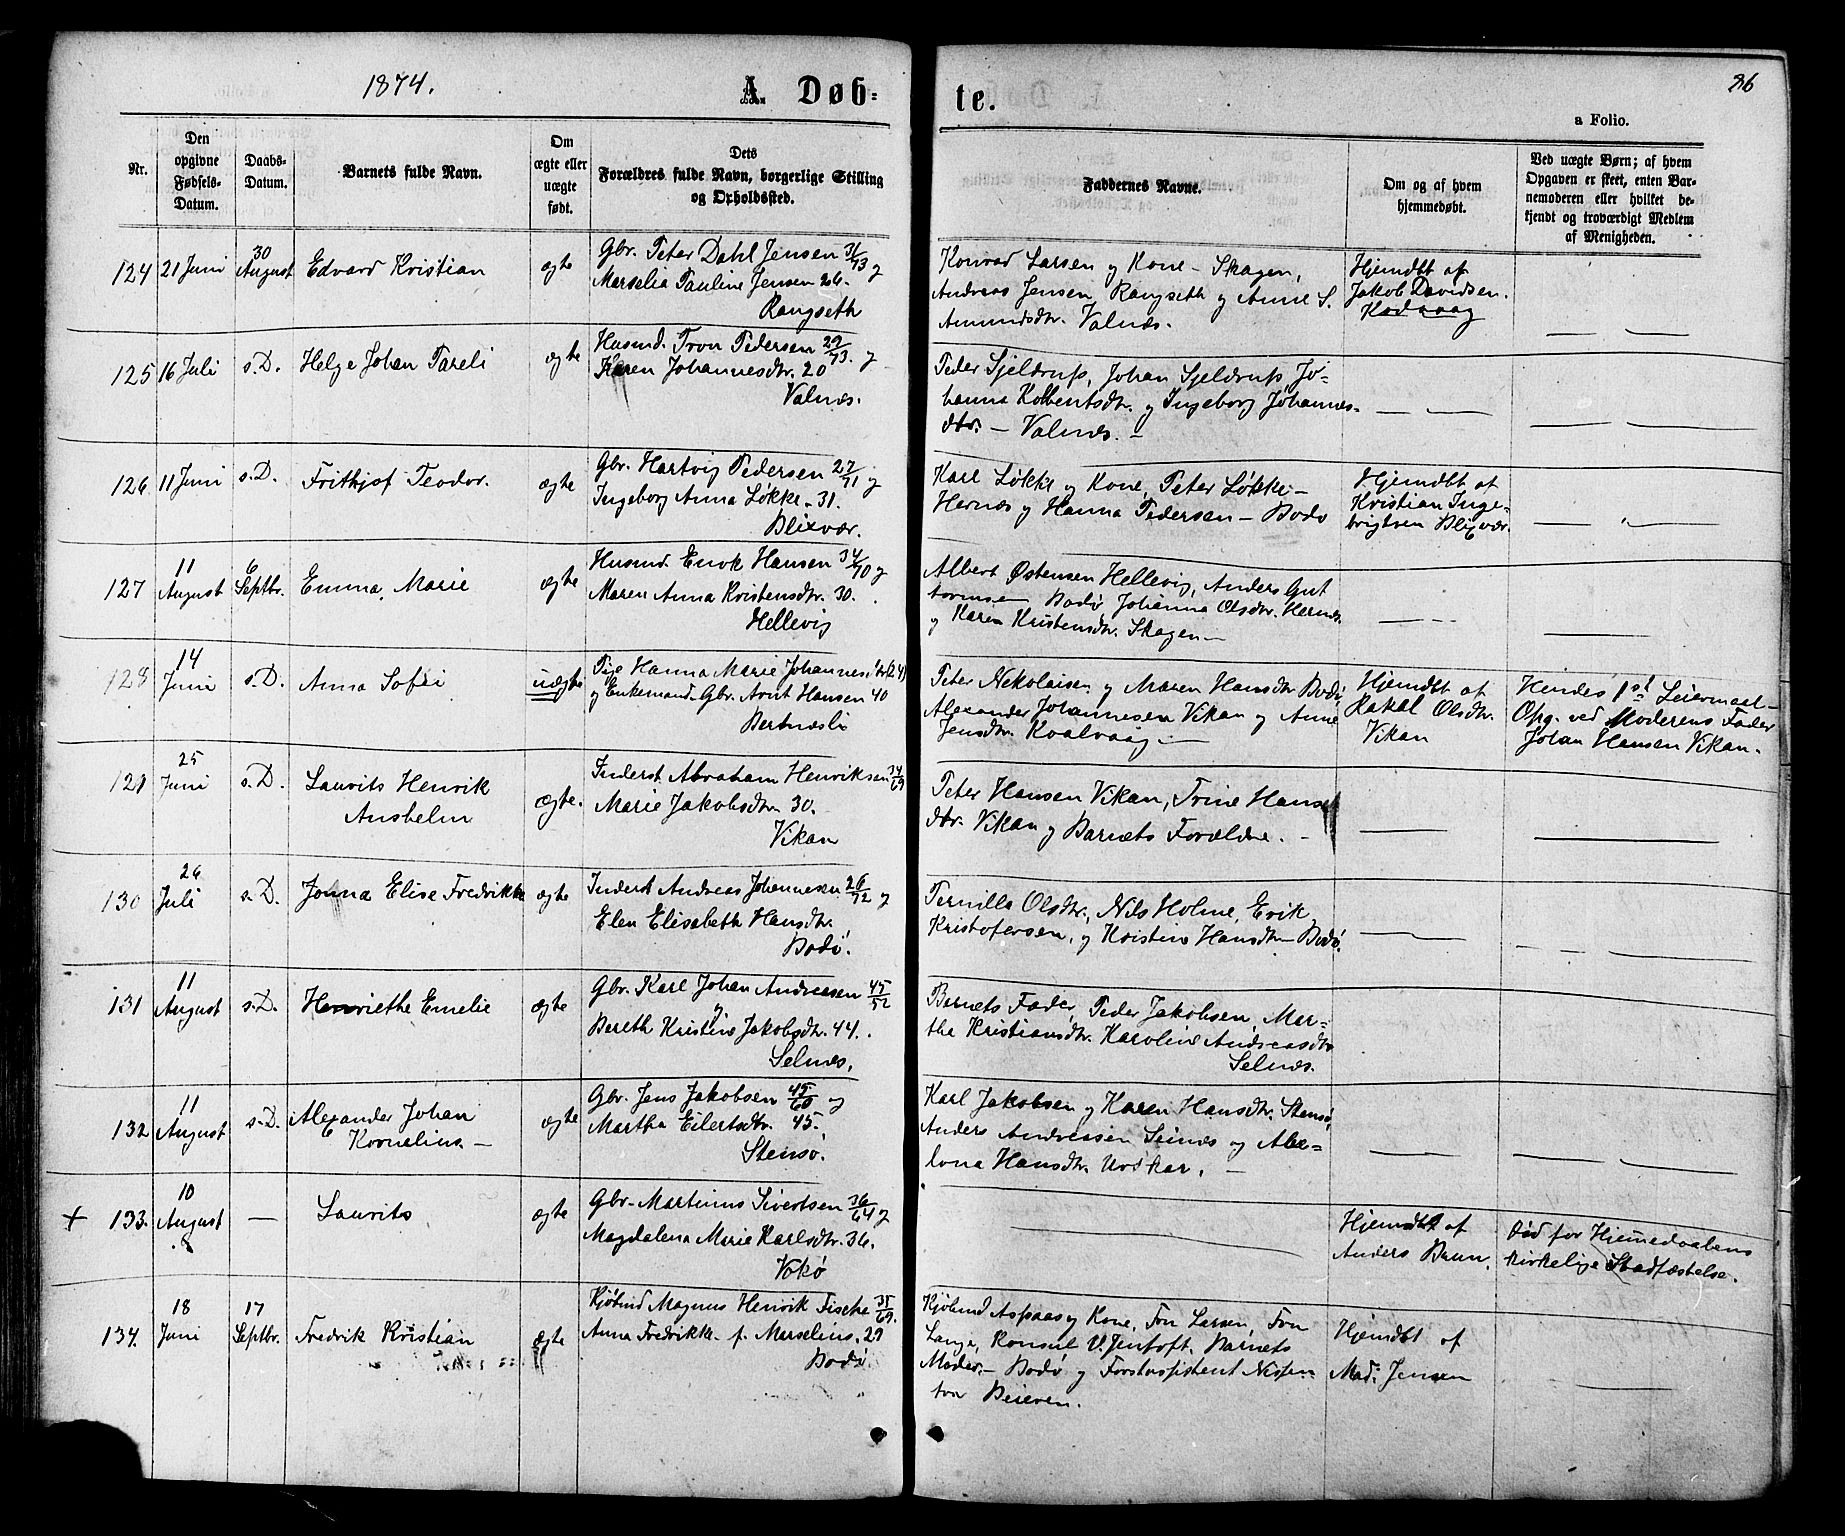 1874.
A. Døb=
te.
86
a Folio.
Nr.
Den
opgivne
Fødsels-
Datum.
Daabs-
Datum.
Barnets fulde Navn.
Om
ægte eller
uægte
født.
Dets
Forældres fulde Navn, borgerlige Stilling
og Opholdssted.
Faddernes Navne.
Om og af hvem
hjemmedøbt.
Ved uægte Børn; af hvem
Opgaven er skeet, enten Bar-
nemoderen eller hvilket be-
kjendt og troværdigt Medlem
af Menigheden.
124
21 Juni
30
August
Edvard Kristian
ægte
Gbr. Peter Dahl Jensen 31/73 og
Marselia Pauline Jensen 26.
Rangseth
Konrad Larsen og Kone - Skagen,
Andreas Jensen, Rangseth og Anne S.
Amundsdtr. Valnæs.
Hjemdbt af
Jakob Davidsen.
Kodvaag
125
16 Juli
s.D.
Helge Johan Pareli
ægte
Husmd. Tron Pedersen 29/73. og
Karen Johannesdtr. 20
Valnæs.
Peder Sjeldrup, Johan Sjeldrup, Jo-
hanna Kolbentsdtr. og Ingeborg Johannes-
dtr. - Valnæs. -
126
11 Juni
s.D.
Frithjof Teodor.
ægte
Gbr. Hartvig Pedersen 27/71 og
Ingeborg Anna Løkke. 31.
Blixvær.
Karl Løkke og Kone, Peter Løkke -
Hernæs og Hanna Pedersen - Bodø
Hjemdbt af
Kristian Inge-
brigtsen Blixvær.
127
11
August
6
Septbr.
Emma Marie
ægte
Husmd. Enok Hansen 34/70 og
Maren Anna Kristensdtr. 30.
Hellevig
Albert Østensen Hellevig, Anders Gut
tormsen Bodø, Johanna Olsdtr. Hernæs
og Karen Kristensdtr. Skagen -
128
14
Juni
s.D.
Anna Sofie
uægte
Pige Hanna Marie Johannesdtr 24
og Enkemand Gbr. Arnt Hansen 40
Bertnæsli
Peter Nikolaisen og Maren Hansdtr Bodø,
Alexander Johannesen Vikan og Anne
Jensdtr. Kvalvaag -
Hjemdbt af
Rakel Olsdtr.
Vikan
Hendes 1st Leiermaal -
Opg. ved Moderens Fader
Johan Hansen Vikan.
129
25
Juni
s.D.
Laurits Henrik
Anshelm
ægte.
Inderst Abraham Henriksen 34/69
Marie Jakobsdtr. 30.
Vikan
Peter Hansen Vikan, Trine Hans
dtr. Vikan og Barnets Forældre. -
130
26
Juli
s.D.
Jonna Elise Fredrikke
ægte
Inderst Andreas Johannesen 26/72 og
Elen Elisabeth Hansdtr.
Bodø.
Pernilla Olsdtr, Nils Holme, Erik
Kristofersen, og Kristine Hansdtr Bodø.
131
11
August
s.D.
Henriethe Emelie
ægte
Gbr. Karl Johan Andreasen 45/52
og
Bereth Kristine Jakobsdtr. 44.
Selnæs.
Barnets Fader, Peder Jakobsen, Mar-
tha Kristiansdtr. Karoline Andreasdtr
Selnæs.
132
11
August
s.D.
Alexander Johan
Kornelius. -
ægte
Gbr. Jens Jakobsen 45/60 og
Martha Eilertsdtr. 45.
Stensø.
Karl Jakobsen og Karen Hansdtr. Stensø,
Anders Andreasen Seinæs og Abe-
lona Hansdtr.
+ 133.
10
August
Laurits
ægte
Gbr. Martinus Sivertsen 36/64 og
Magdalena Marie Karlsdtr. 36.
Vokø
Hjemdbt af
Anders Brun.
Død før Hjemmedaabens
kirkelige Stadfæstelse.
134.
18
Juni
17
Septbr.
Fredrik Kristian
ægte
Kjøbmd Magnus Henrik Fische 35/69.
Anna Fredrikke f. Marselius. 29
Bodø.
Kjøbmd Aspaas og Kone, Frn Larsen, Frn
Lange, Konsul V. Jentoft, Barnets
Moder - Bodø og Forstassistent Nissen
for Beieren.
Hjemdbt af
Mad. Jensen